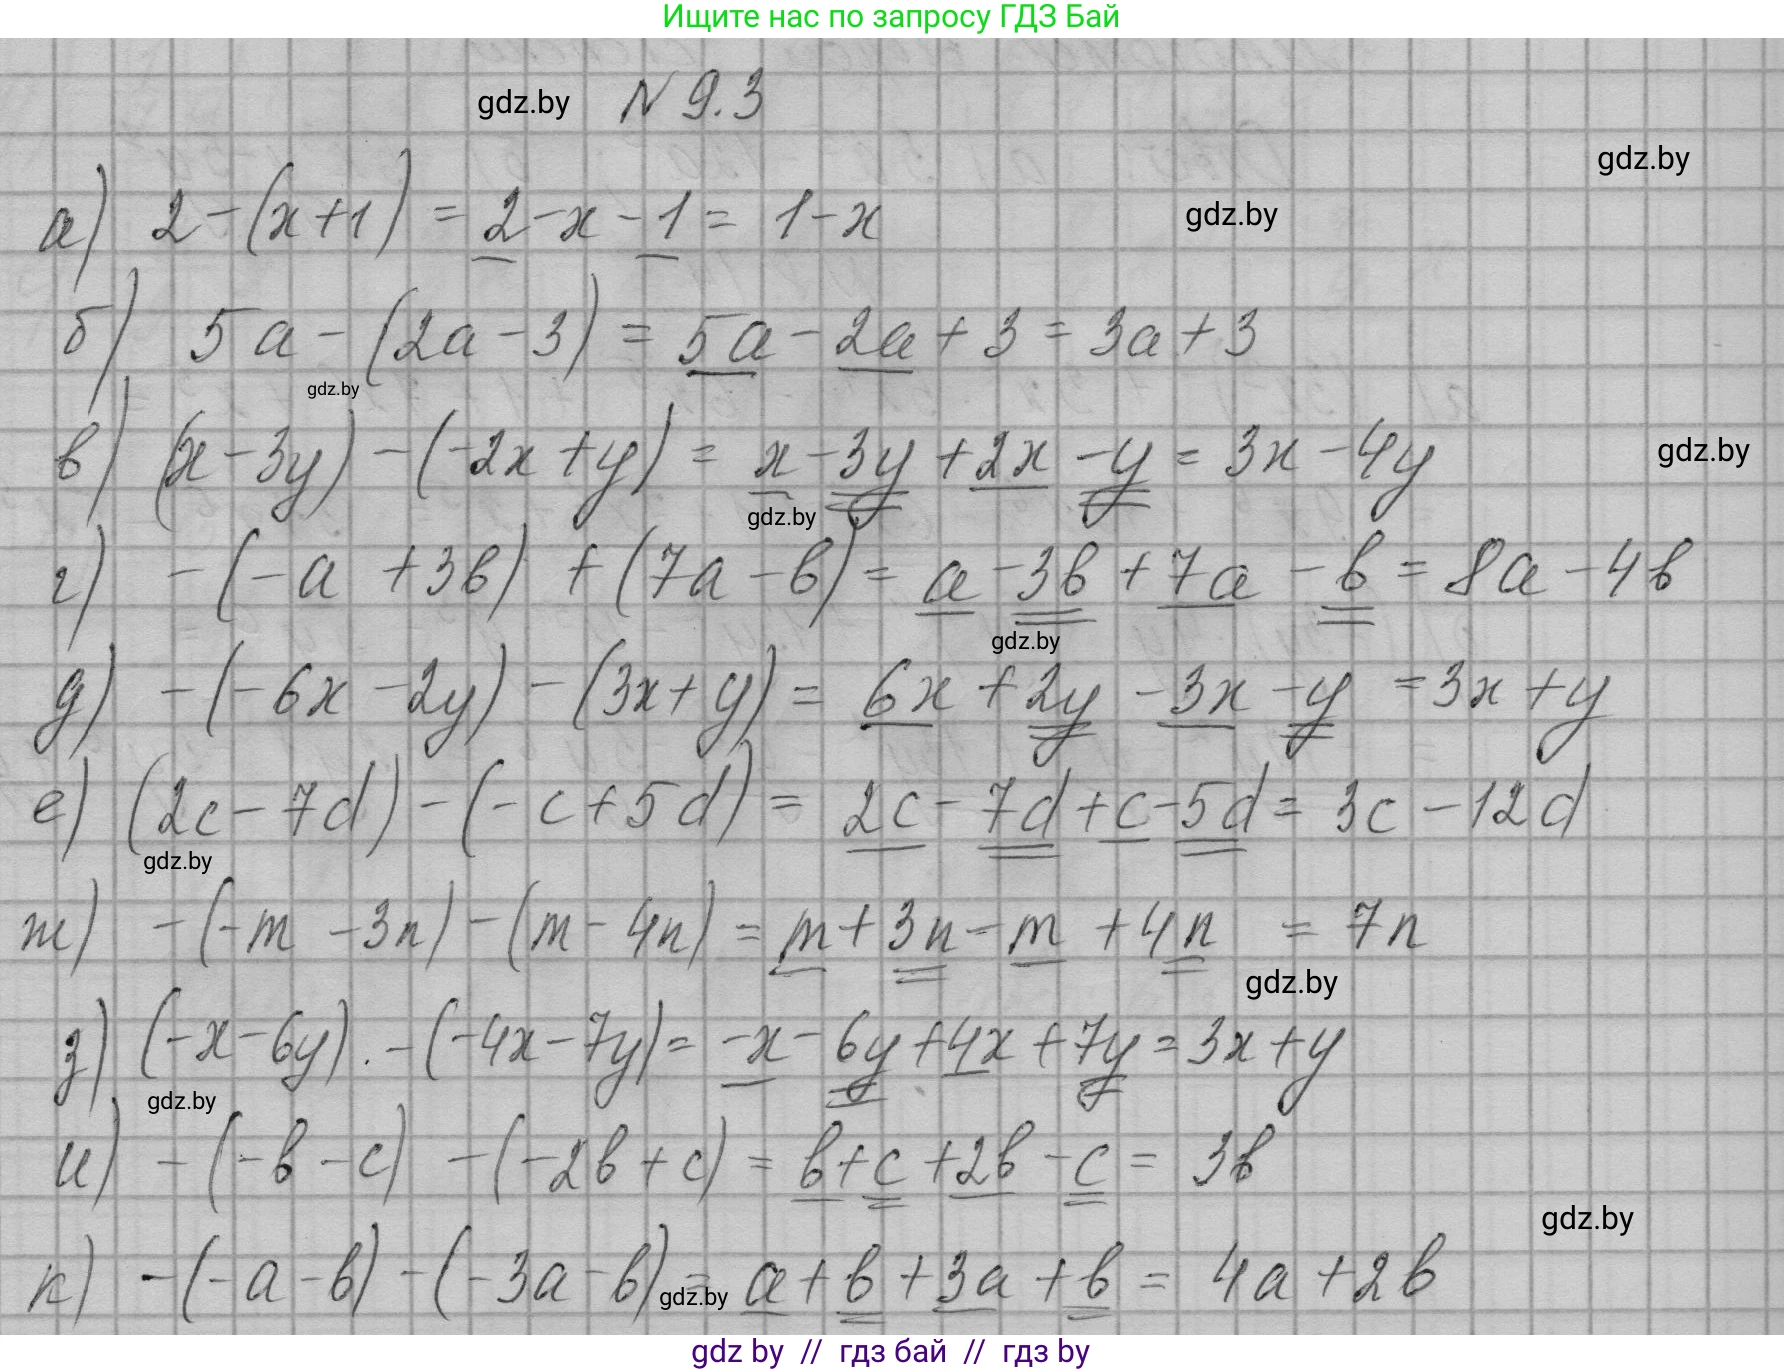 Ищите нас по запросу ГДЗ Бай
gdz.by N 9.3
gdz.by
а) 2-(x+1) = 2-x-1 = 1-x
gdz.by
б) 5a-(2a-3) = 5a-2a+3 = 3a+3
gdz.by
в) (x-3y)-(-2x+y) = x-3y+2x-y = 3x-4y
gdz.by
gdz.by
г) -(-a+3b)+(7a-b) = a-3b+7a-b = 8a-4b
gdz.by
д) -(-6x-2y)-(3x+y) = 6x+2y-3x-y = 3x+y
е) (2c-7d)-(-c+5d) = 2c-7d+c-5d = 3c-12d
gdz.by
ж) -(-m-3n)-(m-4n) = m+3n-m+4n = 7n
gdz.by
з) (-x-6y).-(-4x-7y) = -x-6y+4x+7y = 3x+y
gdz.by
и) -(-b-c)-(-2b+c) = b+c+2b-c = 3b
gdz.by
к) -(-a-b)-(-3a-b) = a+b+3a+b = 4a+2b
gdz.by
gdz by // гдз бай // гдз by